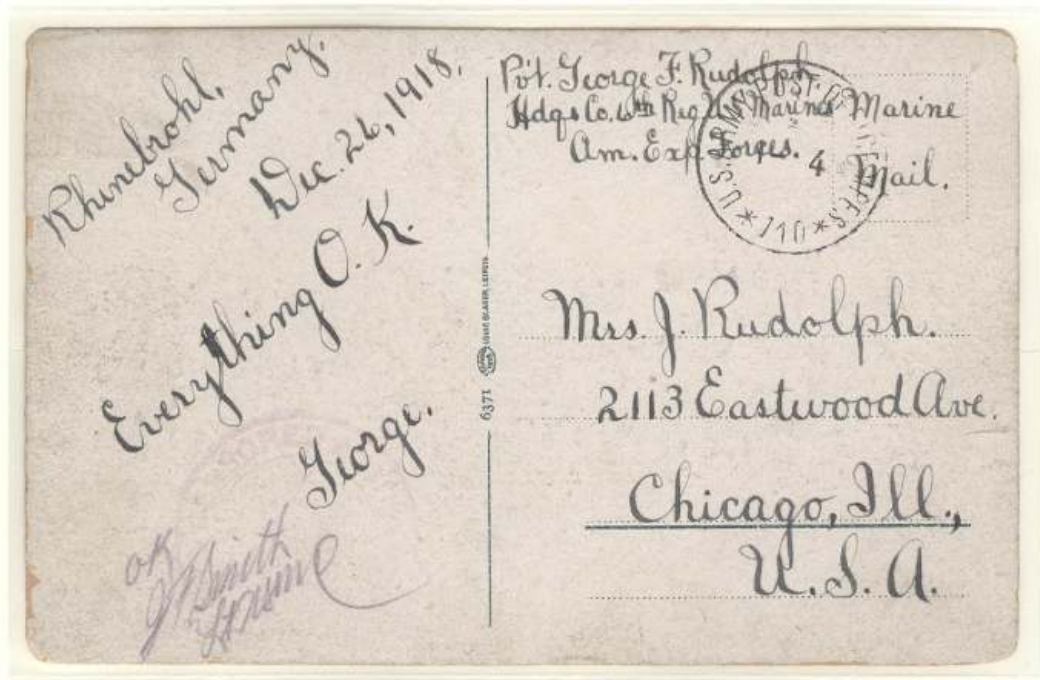 Rhinebrohl,
Germany.
Dec. 26, 1918.
Everything O.K.
George.
OK
Smith
6371
LOUIS GLASER, LEIPZIG
Pvt. George F. Rudolph
Hdqs Co. 6th Reg. U.S. Marines
Am. Exp. Forces.
Marine
Mail.
* U.S. ARMY POST OFFICE * 710 *
4
Mrs. J. Rudolph.
2113 Eastwood Ave.
Chicago, Ill.,
U.S.A.